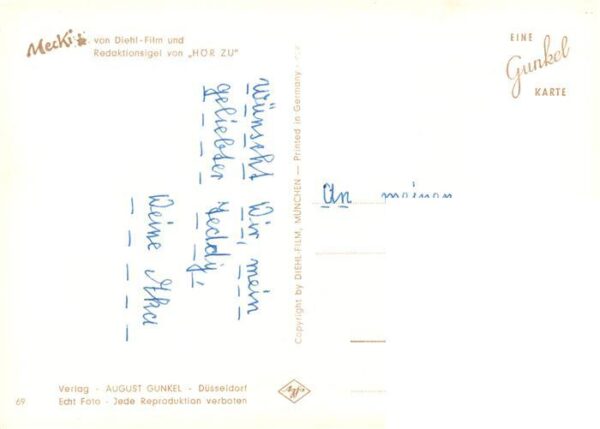 Mecki von Diehl-Film und
Redaktionsigel von „HÖR ZU"
EINE
Gunkel
KARTE
Wünscht Dir, mein
geliebter Teddy,
Deine
Copyright by DIEHL-FILM, MÜNCHEN — Printed in Germany
An meinen
Verlag · AUGUST GUNKEL · Düsseldorf
69 Echt Foto · Jede Reproduktion verboten